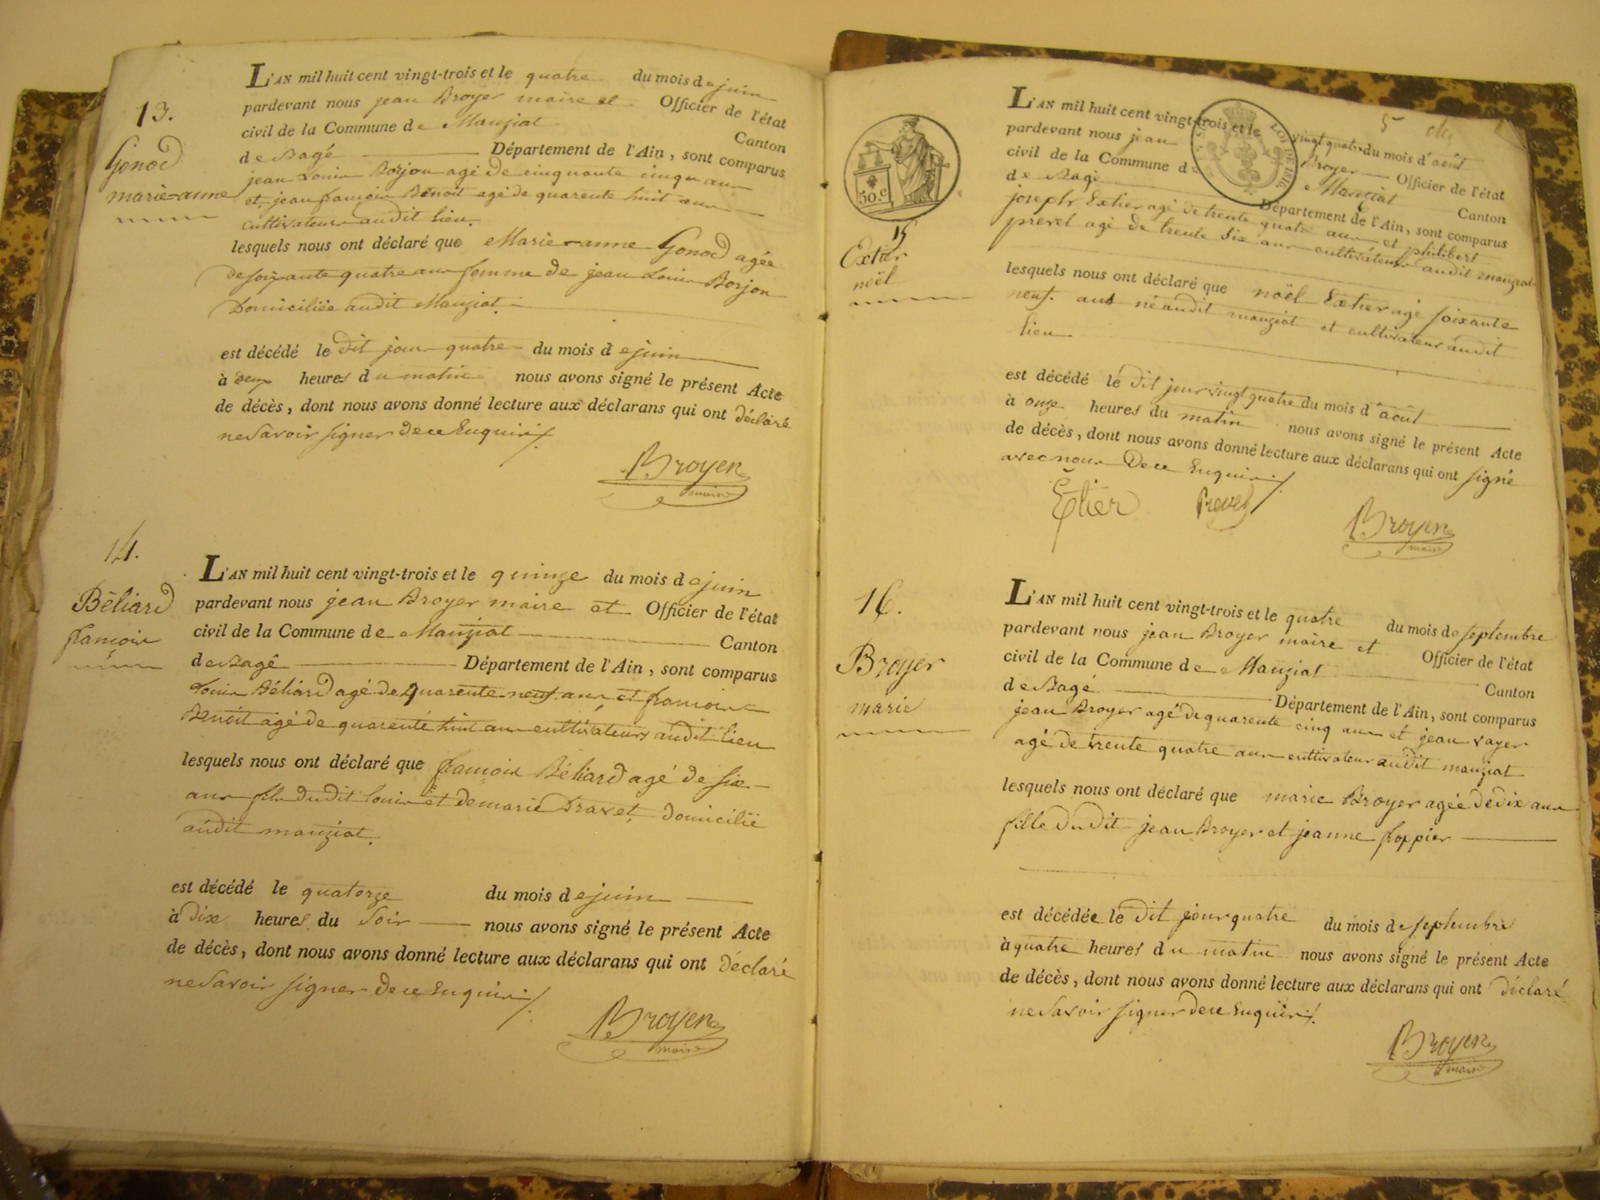 13.
Gonod
marie-anne
L'AN mil huit cent vingt-trois et le quatre du mois de juin
pardevant nous jean Broyer maire et Officier de l'état
civil de la Commune de Manziat Canton
de Bagé Département de l'Ain, sont comparus
jean Louis Borjon agé de cinquante cinq ans
et jean françois Benoit agé de quarente huit ans
cultivateurs audit lieu.
lesquels nous ont déclaré que Marie-anne Gonod agée
de soixante quatre ans femme de jean Louis Borjon
Domiciliée audit Manziat.
est décédé le dit jour quatre du mois de juin
à deux heures du matin nous avons signé le présent Acte
de décès, dont nous avons donné lecture aux déclarans qui ont déclaré
ne Savoir signer de ce Enquis
Broyer
maire
14.
Béliard
françois
L'AN mil huit cent vingt-trois et le quinze du mois de juin
pardevant nous jean Broyer maire et Officier de l'état
civil de la Commune de Manziat Canton
de Bagé Département de l'Ain, sont comparus
Louis Béliard agé de quarente neuf ans et françois
Benoit agé de quarente huit ans cultivateurs audit lieu
lesquels nous ont déclaré que françois Béliard agé de six
ans fils dudit louis et de marie Dravet, domicilié
audit manziat.
est décédé le quatorze du mois de juin
à dix heures du Soir nous avons signé le présent Acte
de décès, dont nous avons donné lecture aux déclarans qui ont déclaré
ne Savoir signer de ce Enquis
Broyer
maire
50 c.
LOI DE 1816
15
Extier
noël
L'AN mil huit cent vingt-trois et le vingt quatre du mois d'août
pardevant nous jean Broyer Officier de l'état
civil de la Commune de Manziat Canton
de Bagé Département de l'Ain, sont comparus
joseph Extier agé de trente quatre ans et philibert
prevel agé de trente six ans cultivateurs audit manziat
lesquels nous ont déclaré que noël Extier agé soixante
neuf ans né audit manziat et cultivateur audit
lieu
est décédé le dit jour vingt quatre du mois d'août
à onze heures du matin nous avons signé le présent Acte
de décès, dont nous avons donné lecture aux déclarans qui ont signé
avec nous De ce Enquis
Etier Prevel Broyer
maire
16.
Broyer
marie
L'AN mil huit cent vingt-trois et le quatre du mois de septembre
pardevant nous jean Broyer maire et Officier de l'état
civil de la Commune de Manziat Canton
de Bagé Département de l'Ain, sont comparus
jean Broyer agé de quarente cinq ans et jean rayer
agé de trente quatre ans cultivateurs audit manziat
lesquels nous ont déclaré que marie Broyer agée de dix ans
fille dudit jean Broyer et jeanne froppier
est décédée le dit jour quatre du mois de septembre
à quatre heures du matin nous avons signé le présent Acte
de décès, dont nous avons donné lecture aux déclarans qui ont déclaré
ne Savoir signer de ce Enquis
Broyer
maire